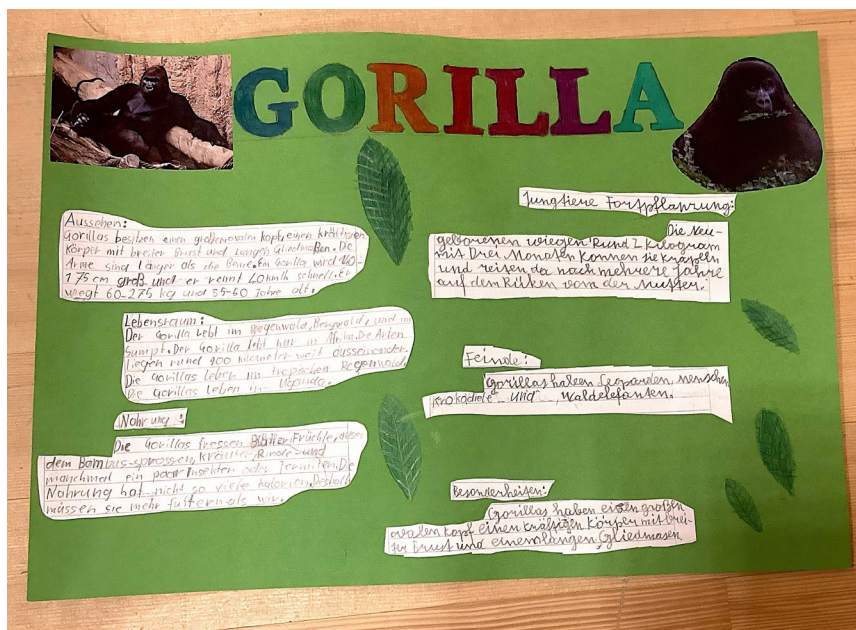 GORILLA
Aussehen:
Gorillas besitzen einen großen ovalen kopf, einen kräftigen
Körper mit breiter Brust und langen Gliedmaßen. Die
Arme sind länger als die Beine. Ein Gorilla wird
175 cm groß und er rennt 40 kmlh schnell. er
wiegt 60-275 kg und 35-50 Jahre alt.
Lebensraum:
Der Gorilla lebt im Regenwald, Bergwald, und im
Sumpf. Der Gorilla lebt nur in Afrika. Die Arten
liegen rund 900 kilometer weit
Die Gorillas leben im tropschen Regenwald.
Die Gorillas leben in Uganda.
Nahrung:
Die Gorillas fressen Blätter, Früchte,
dem Bambus-sprossen, kräuter, Rinde und
manchmal ein paar Insekten oder Termiten. Die
Nahrung hat nicht so viele kalorien. Deshalb
müssen sie mehr futtern als wir.
Jungtiere
Die Neu-
geborenen wiegen Rund 2 Kilogram
mit Drei Monaten können sie krabbeln
und reisen da nach mehrere Jahre
auf dem Rüken von der Mutter.
Feinde:
Gorillas haben Leoparden menschen
krokodiele und Waldelefanten.
Besonderheiten:
Gorillas haben einen großen
ovalen Kopf einen kräftigen Körper mit brei-
ter Brust und einen langen Gliedmasen